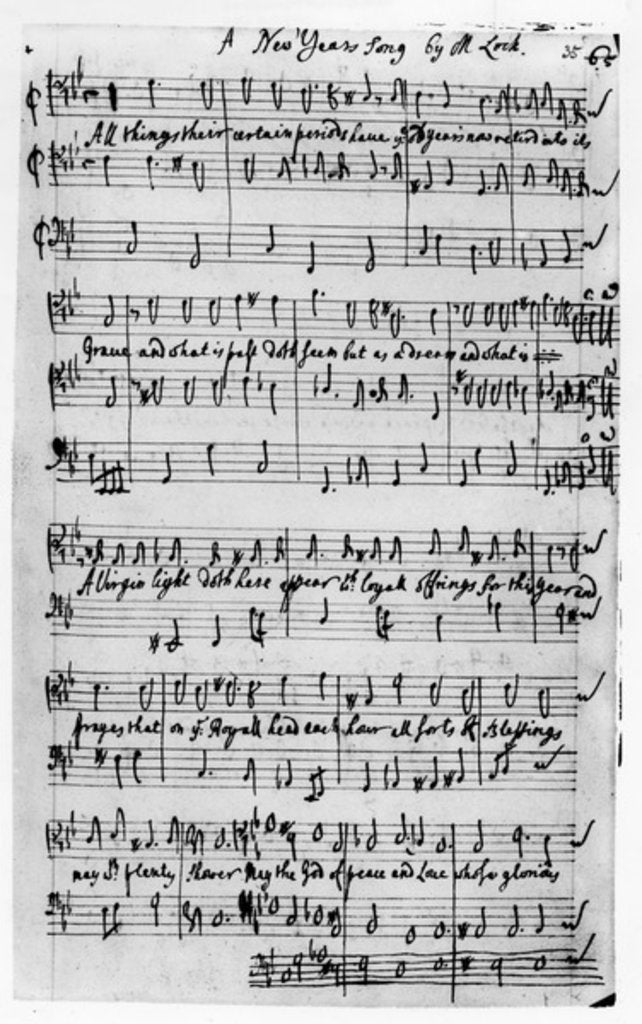 A New Years Song by M Lock. 35 65
All things their certain periods have ye old years now retird into its
Grave and what is past doth seem but as a dream and what is
A Virgin light doth here appear wth loyall offrings for this year and
prayes that on ye. Royall head each hour all sorts of Blessings
may plenty shower May the God of peace and Love whose glorious